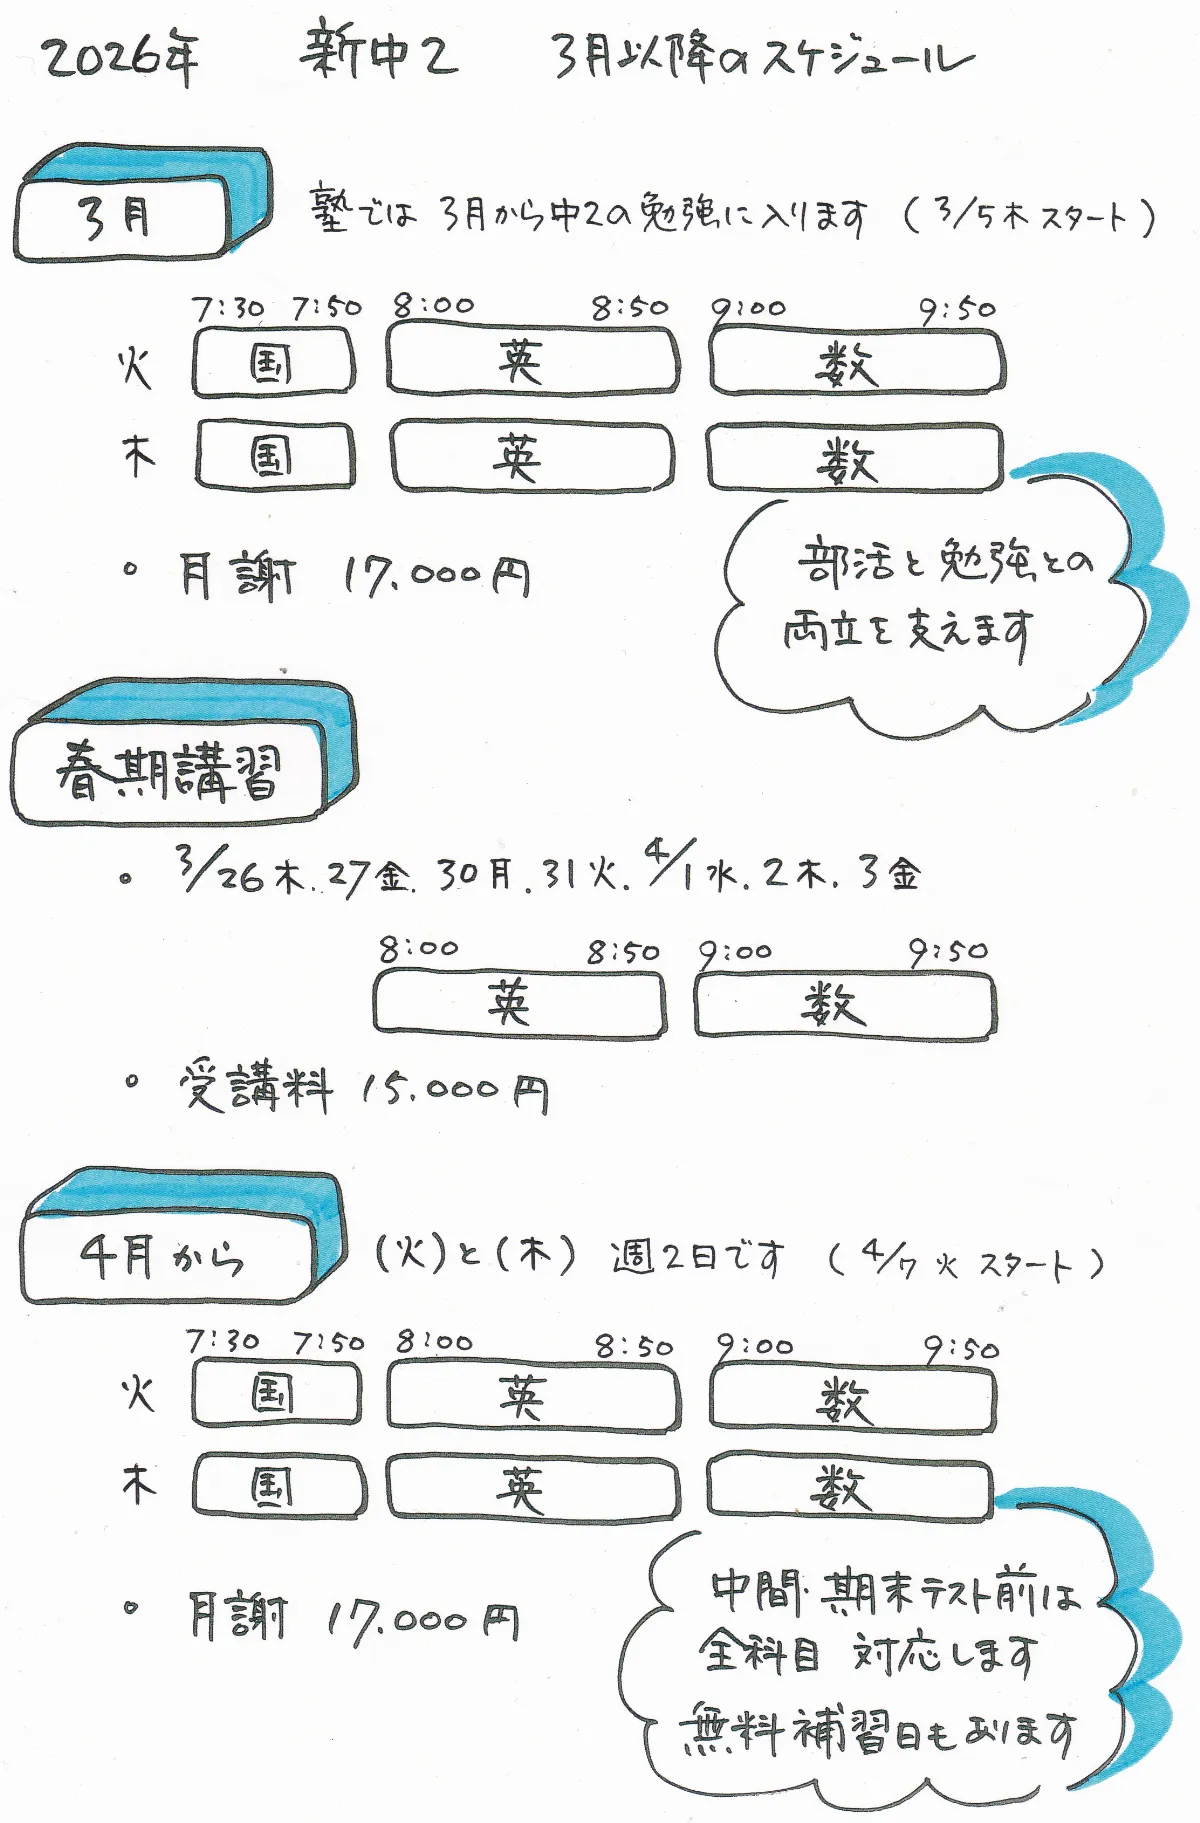 2026年 新中2 3月以降のスケジュール
3月 塾では 3月から中2の勉強に入ります (3/5木 スタート)
7:30 7:50 8:00 8:50 9:00 9:50
火 国 英 数
木 国 英 数
部活と勉強との
両立を支えます
。月謝 17.000円
春期講習
。3/26木.27金.30月.31火.4/1水.2木.3金
8:00 8:50 9:00 9:50
英 数
。受講料 15.000円
4月から (火)と(木) 週2日です (4/7火 スタート)
7:30 7:50 8:00 8:50 9:00 9:50
火 国 英 数
木 国 英 数
。月謝 17.000円
中間・期末テスト前は
全科目 対応します
無料補習日もあります